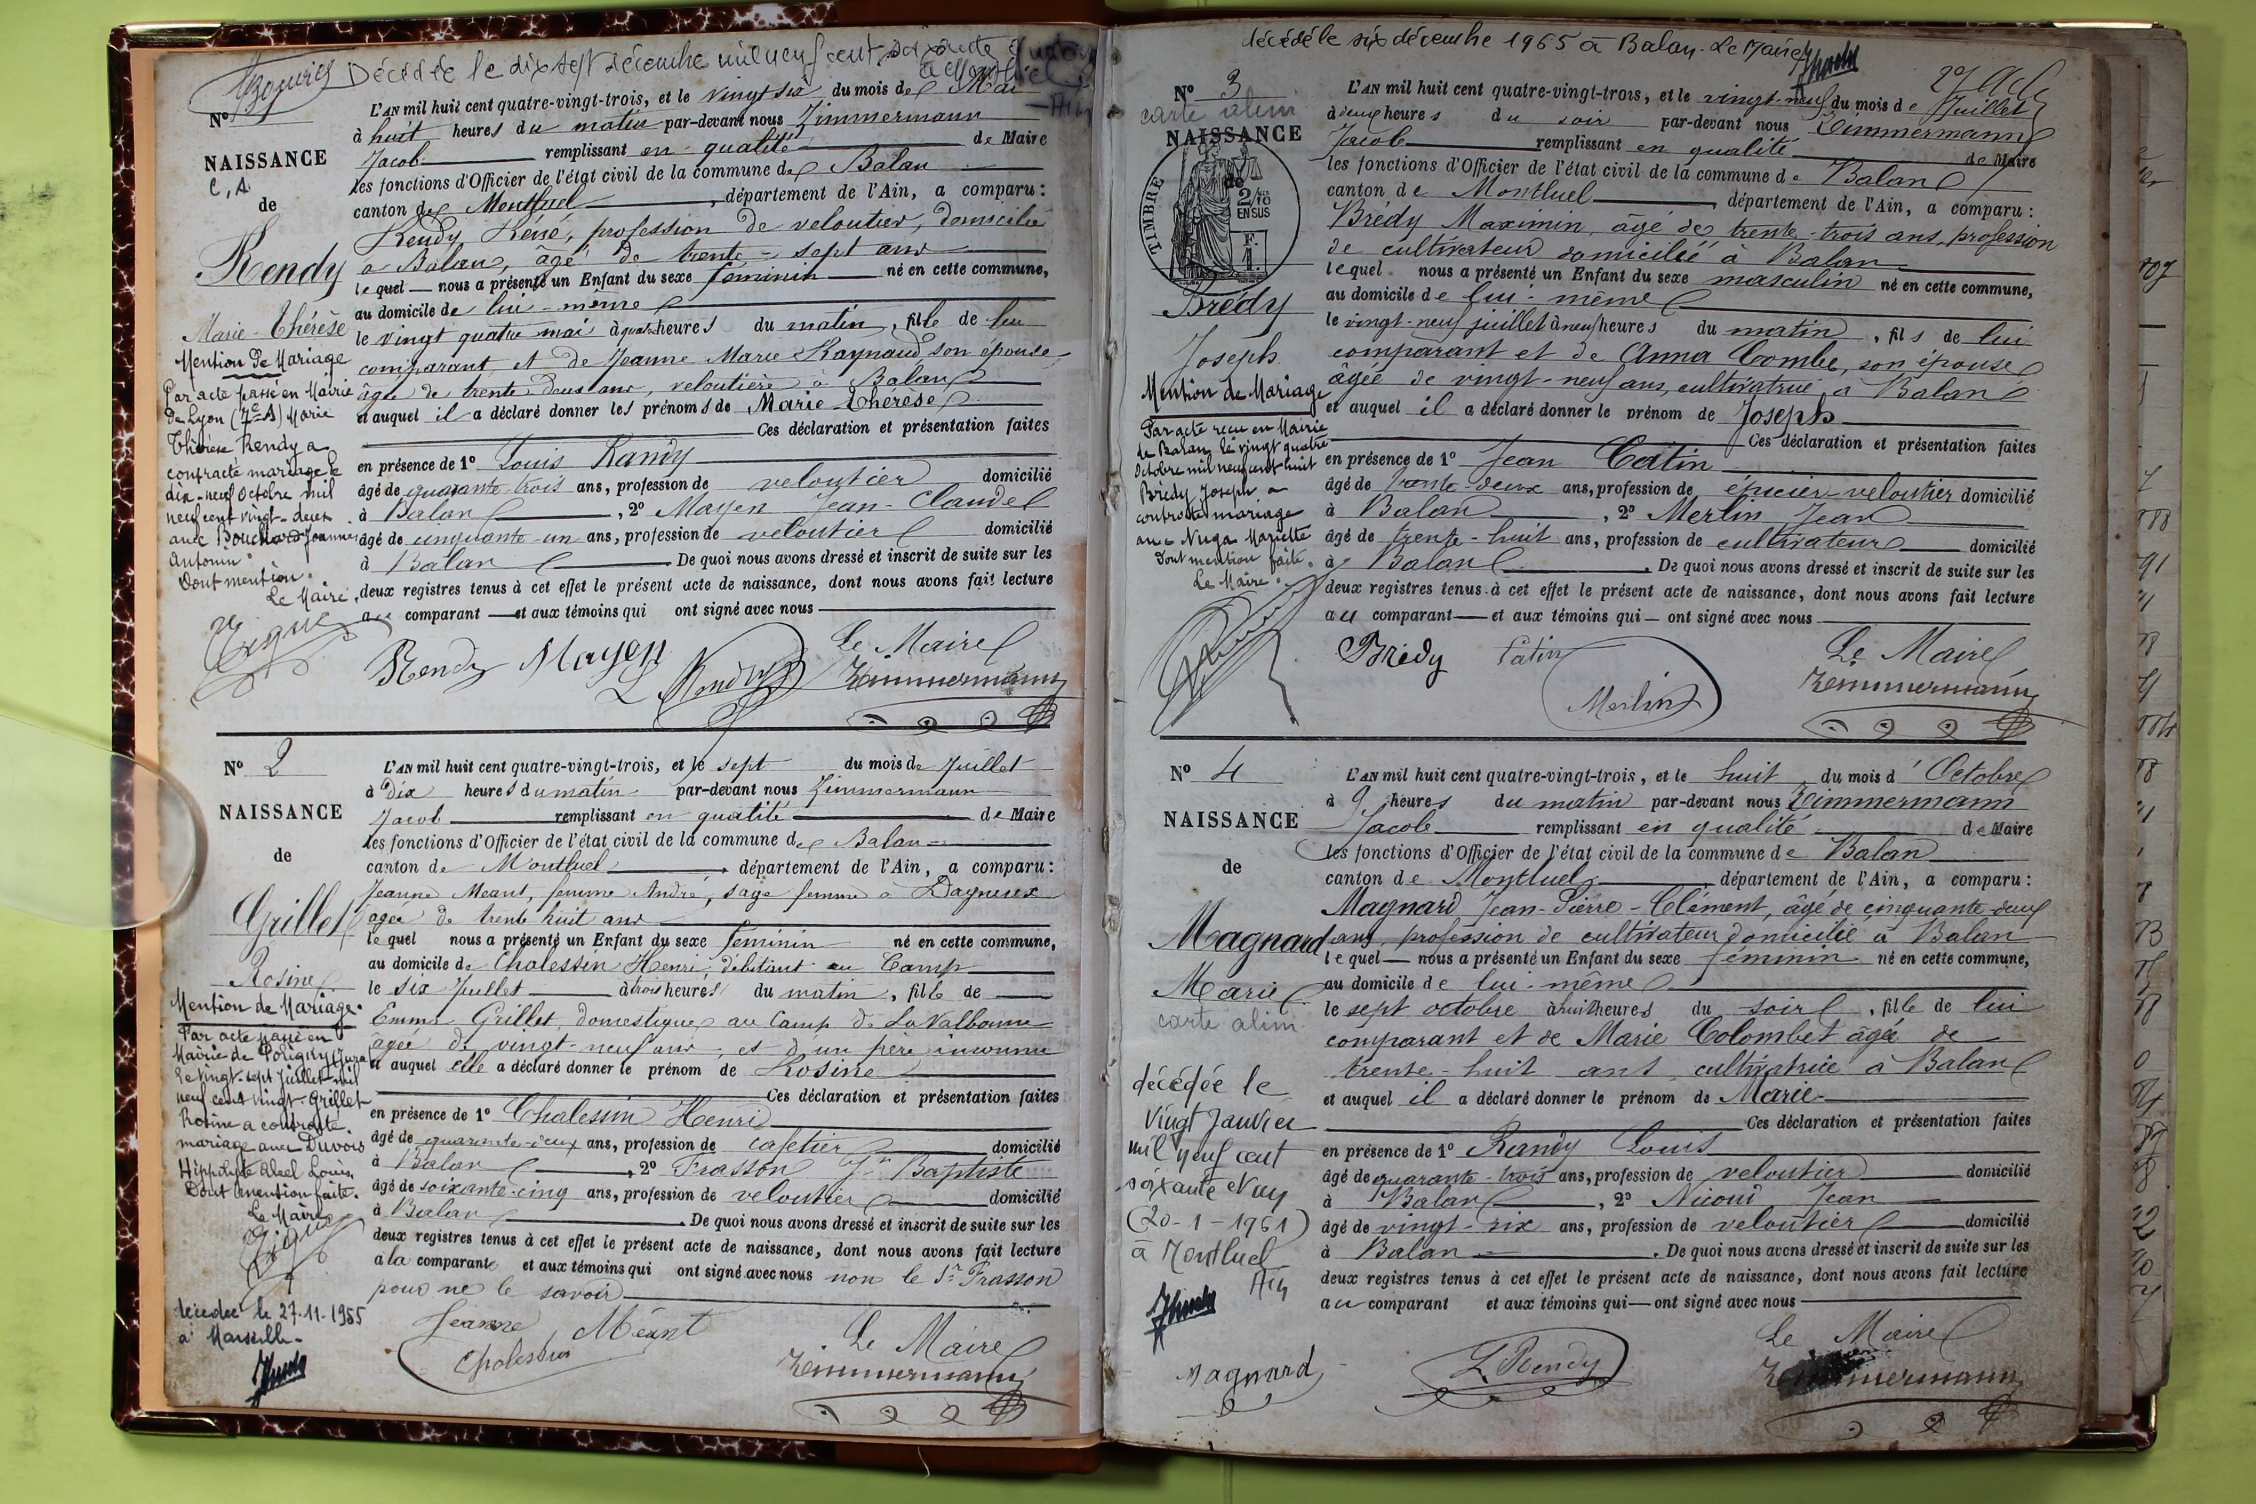 Décédée le dix sept décembre mil neuf cent soixante
Nº
NAISSANCE
C, A
de
Rendy
Marie-Thérèse
Mention de Mariage
Par acte passé en Mairie
de Lyon (7e A) Marie
Thérèse Rendy a
contracté mariage le
dix-neuf Octobre mil
neuf cent vingt-deux
avec Bouchard Joannes
Antonin
Dont mention.
Le Maire,
L'AN mil huit cent quatre-vingt-trois, et le vingt six du mois de Mai
à huit heures du matin par-devant nous Zimmermann
Jacob remplissant en qualité de Maire
les fonctions d'Officier de l'état civil de la commune de Balan
canton de Montluel, département de l'Ain, a comparu:
Rendy Réné, profession de veloutier, domicilié
à Balan, âgé de trente-sept ans
lequel nous a présenté un Enfant du sexe féminin né en cette commune,
au domicile de lui-même
le vingt quatre mai à quatre heures du matin, fille de lui
comparant et de Jeanne Marie Raynaud son épouse
âgée de trente deux ans, veloutière à Balan
et auquel il a déclaré donner les prénoms de Marie Thérèse
Ces déclaration et présentation faites
en présence de 1º Louis Randy
âgé de quarante-trois ans, profession de veloutier domicilié
à Balan, 2º Mayen Jean-Claude
âgé de cinquante-un ans, profession de veloutier domicilié
à Balan De quoi nous avons dressé et inscrit de suite sur les
deux registres tenus à cet effet le présent acte de naissance, dont nous avons fait lecture
au comparant et aux témoins qui ont signé avec nous
Rendy Mayen L Rendy
Le Maire
Zimmermann
Nº 2
NAISSANCE
de
Grillet
Rosine
Mention de Mariage.
Par acte passé en
Mairie de Poligny (Jura)
le vingt-sept Juillet mil
neuf cent vingt. Grillet
Rosine a contracté
mariage avec Duvois
Hippolyte Abel Louis.
Dont mention faite.
Le Maire
décédée le 27-11-1955
à Marseille-
L'AN mil huit cent quatre-vingt-trois, et le sept du mois de Juillet
à dix heures du matin par-devant nous Zimmermann
Jacob remplissant en qualité de Maire
les fonctions d'Officier de l'état civil de la commune de Balan
canton de Montluel, département de l'Ain, a comparu:
Jeanne Meant, femme André, sage femme à Dagneux
âgée de trente huit ans
le quel nous a présenté un Enfant du sexe féminin né en cette commune,
au domicile de Chalessin Henri, débitant au Camp
le six Juillet à trois heures du matin, fille de
Emma Grillet, domestique au Camp de La Valbonne
âgée de vingt-neuf ans, et d'un père inconnu
et auquel elle a déclaré donner le prénom de Rosine
Ces déclaration et présentation faites
en présence de 1º Chalessin Henri
âgé de quarante-deux ans, profession de cafetier domicilié
à Balan, 2º Frasson Jn Baptiste
âgé de soixante-cinq ans, profession de veloutier domicilié
à Balan. De quoi nous avons dressé et inscrit de suite sur les
deux registres tenus à cet effet le présent acte de naissance, dont nous avons fait lecture
à la comparante et aux témoins qui ont signé avec nous non le Sr Frasson
pour ne le savoir
Jeanne Méant
Chalessin
Le Maire
Zimmermann
décédé le six décembre 1965 à Balan. Le Maire
Nº 3
carte alim
NAISSANCE
TIMBRE
de
2/10
EN SUS
F.
1.
Brédy
Joseph
Mention de Mariage
Par acte reçu en Mairie
de Balan le vingt quatre
Octobre mil neuf cent huit
Brédy Joseph a
contracté mariage
avec Nuga Mariette
Dont mention faite.
Le Maire.
L'AN mil huit cent quatre-vingt-trois, et le vingt-neuf du mois de Juillet
à deux heures du soir par-devant nous Zimmermann
Jacob remplissant en qualité de Maire
les fonctions d'Officier de l'état civil de la commune de Balan
canton de Montluel, département de l'Ain, a comparu:
Brédy Maximin, âgé de trente-trois ans, profession
de cultivateur domicilié à Balan
lequel nous a présenté un Enfant du sexe masculin né en cette commune,
au domicile de lui-même
le vingt-neuf juillet à neuf heures du matin, fils de lui
comparant et de Anna Combe, son épouse
âgée de vingt-neuf ans, cultivatrice à Balan
et auquel il a déclaré donner le prénom de Joseph
Ces déclaration et présentation faites
en présence de 1º Jean Catin
âgé de trente-deux ans, profession de épicier-veloutier domicilié
à Balan, 2º Merlin Jean
âgé de trente-huit ans, profession de cultivateur domicilié
à Balan. De quoi nous avons dressé et inscrit de suite sur les
deux registres tenus à cet effet le présent acte de naissance, dont nous avons fait lecture
au comparant et aux témoins qui ont signé avec nous
Brédy Catin
Merlin
Le Maire
Zimmermann
Nº 4
NAISSANCE
de
Magnard
Marie
carte alim
décédée le
vingt Janvier
mil neuf cent
soixante et un
(20-1-1961)
à Montluel
Ain
L'AN mil huit cent quatre-vingt-trois, et le huit du mois d'Octobre
à 9 heures du matin par-devant nous Zimmermann
Jacob remplissant en qualité de Maire
les fonctions d'Officier de l'état civil de la commune de Balan
canton de Montluel, département de l'Ain, a comparu:
Magnard Jean-Pierre-Clément, âgé de cinquante-deux
ans, profession de cultivateur domicilié à Balan
lequel nous a présenté un Enfant du sexe féminin né en cette commune,
au domicile de lui-même
le sept octobre à huit heures du soir, fille de lui
comparant et de Marie Colombet âgée de
trente-huit ans cultivatrice à Balan
et auquel il a déclaré donner le prénom de Marie
Ces déclaration et présentation faites
en présence de 1º Randy Louis
âgé de quarante-trois ans, profession de veloutier domicilié
à Balan, 2º Nicoud Jean
âgé de vingt-six ans, profession de veloutier domicilié
à Balan. De quoi nous avons dressé et inscrit de suite sur les
deux registres tenus à cet effet le présent acte de naissance, dont nous avons fait lecture
au comparant et aux témoins qui ont signé avec nous
Magnard L Rendy
Le Maire
Zimmermann